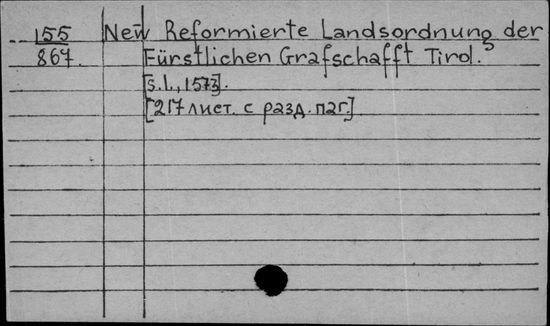 155 New̄ Reformierte Landsordnung der
867. Fürstlichen Grafschafft Tirol.
[s.l., 1573].
[217 лист. с разд. паг.]